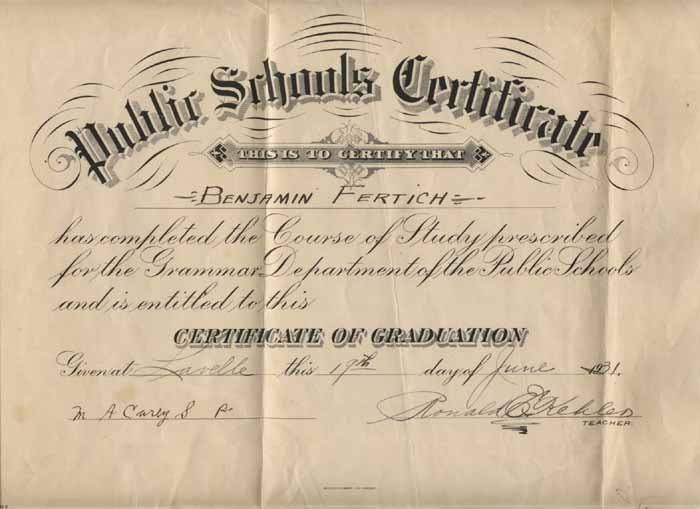 Public Schools Certificate
THIS IS TO CERTIFY THAT
BENJAMIN FERTICH
has completed the Course of Study prescribed
for the Grammar Department of the Public Schools
and is entitled to this
CERTIFICATE OF GRADUATION
Given at Lavelle this 19th day of June 1931.
M A Carey S P. Ronald E Kehler
TEACHER.